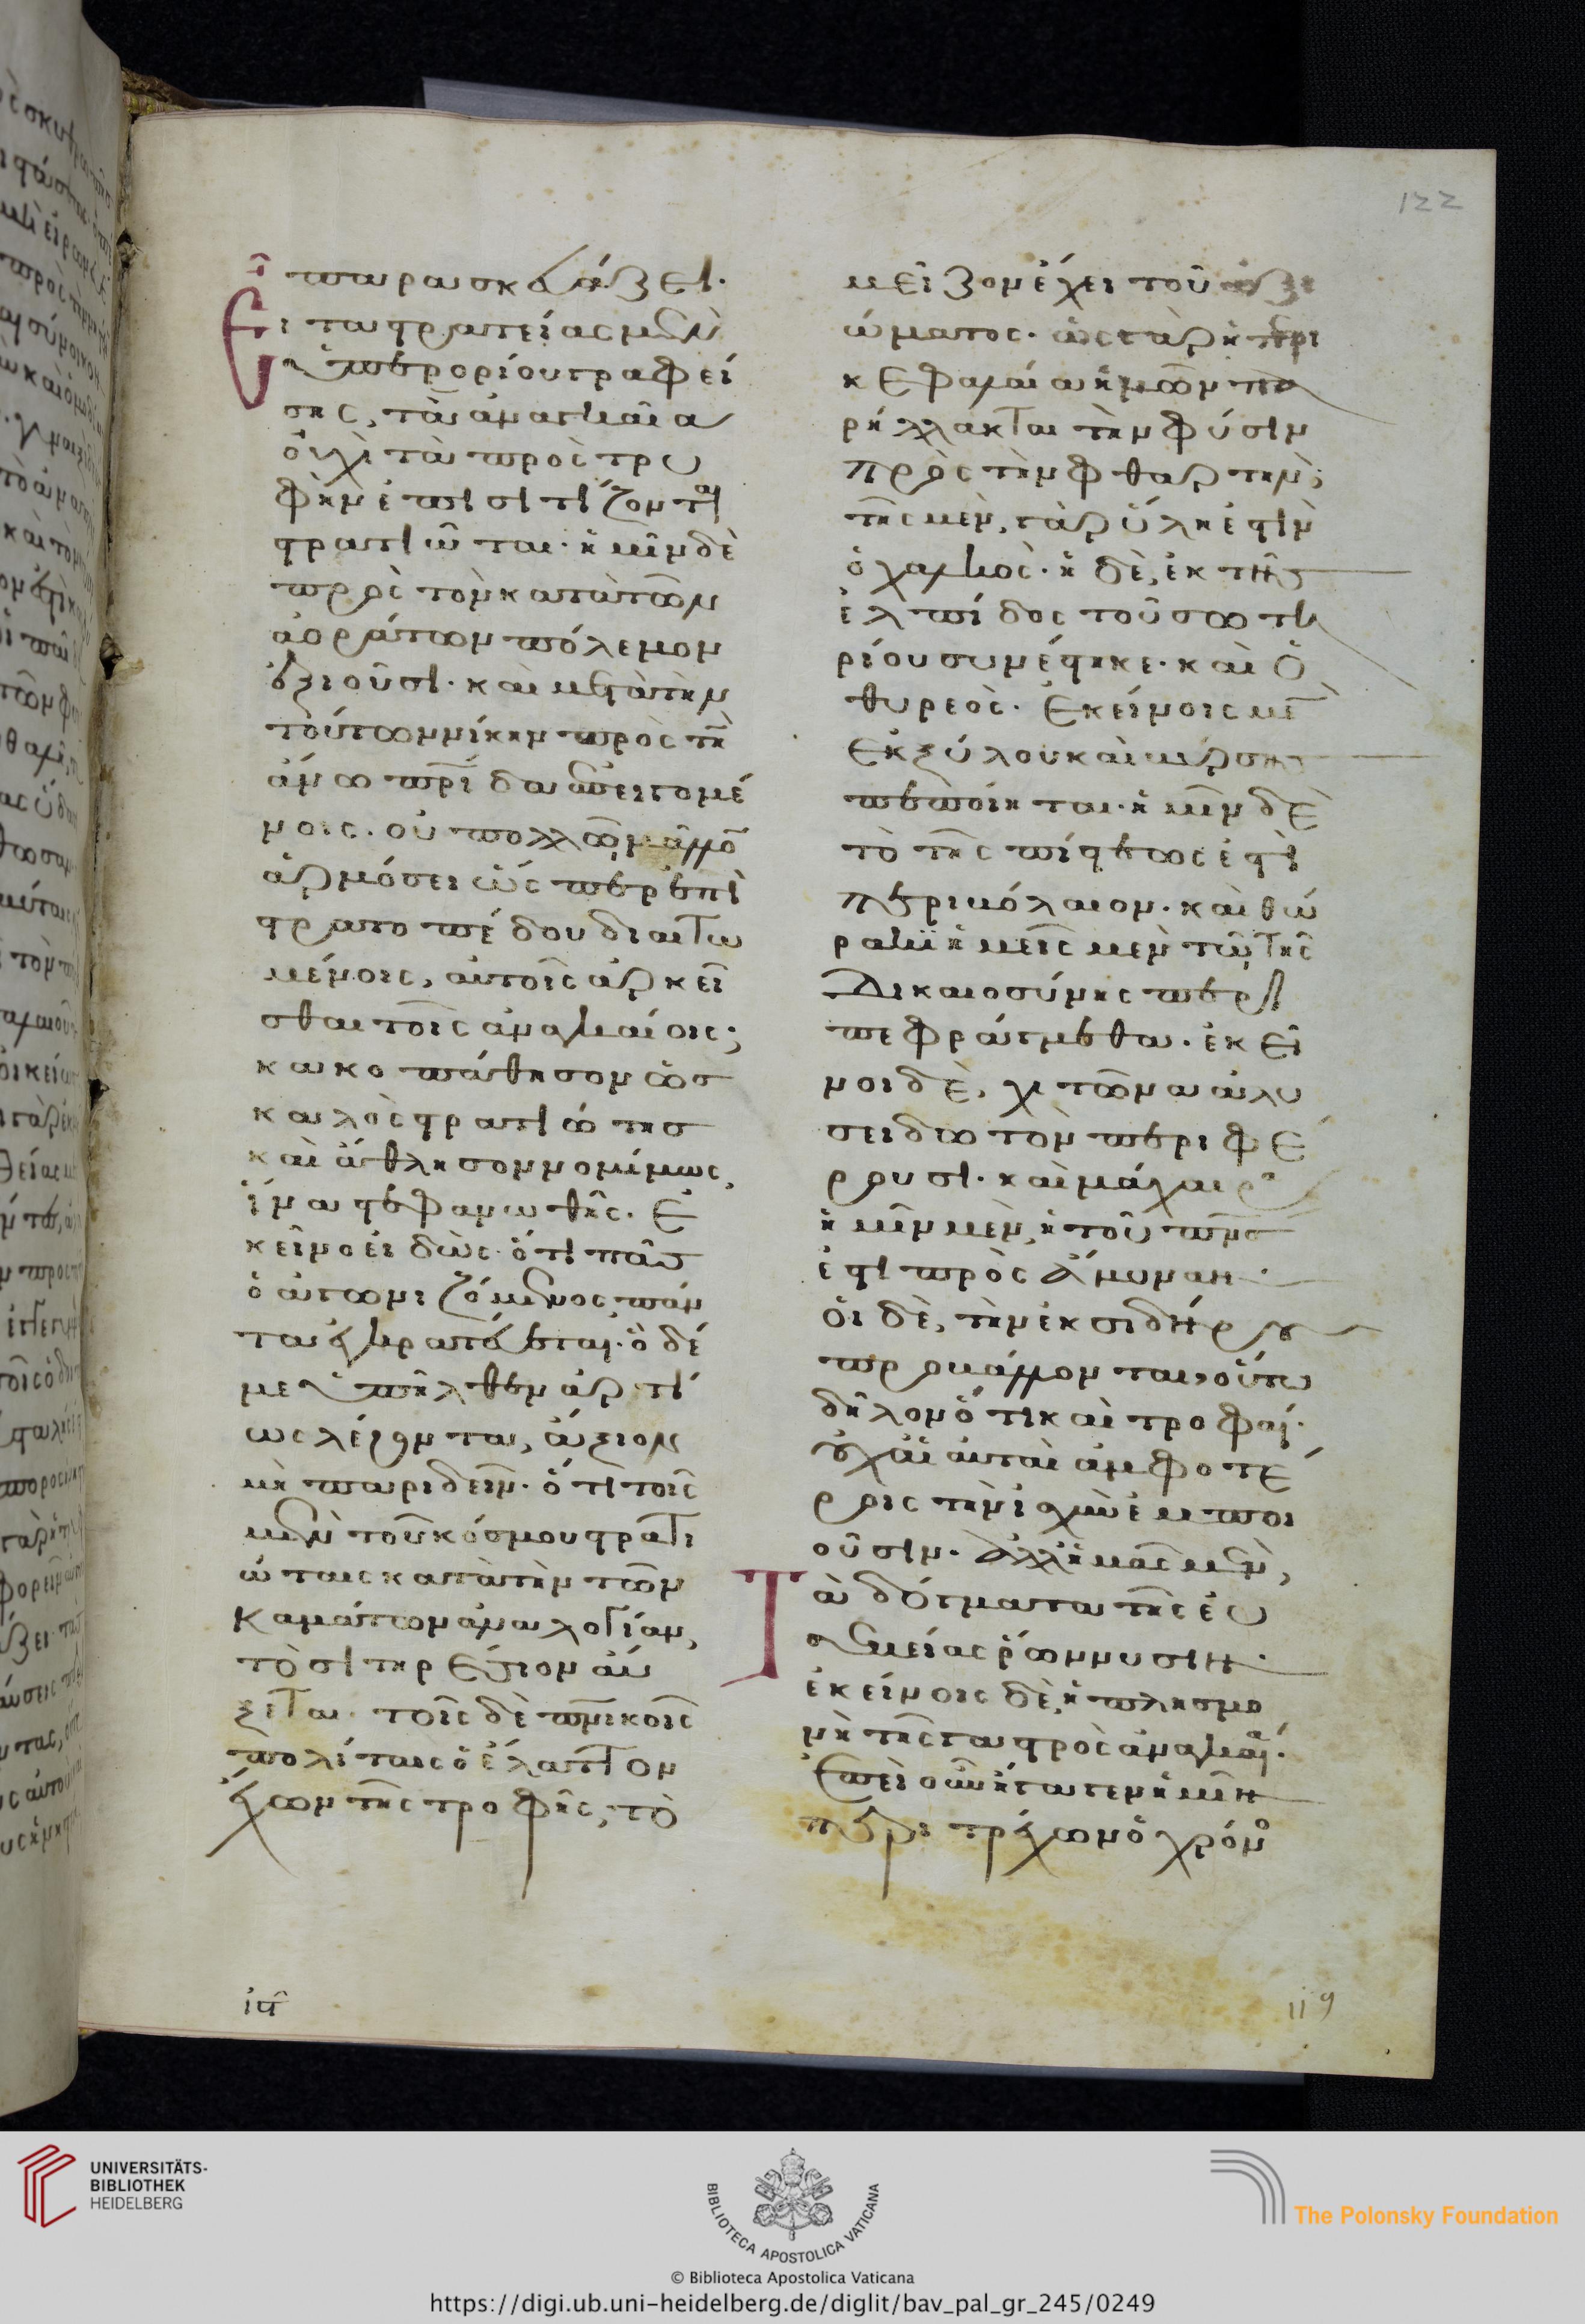 122
παρασκευάζει.
Εἰ τα στρατείας μὲν
ὑπερορίου γραφεί
σης, τὰ ἀναγκαῖα
οὐχὶ τὰ πρὸς τρυ
φὴν ἐπισιτίζονται
στρατιῶται· ἡμῖν δὲ
πρὸς τὸν κατὰ τῶν
ἀοράτων πόλεμον
ἐξιοῦσι· καὶ μετὰ τὴν
τούτων νίκην πρὸς τὴν
ἄνω πρίδα ἐπειγομέ
νοις. οὐ πολλῷ μᾶλλον
ἁρμόσει ὡς περ ἐπὶ
στρατοπέδου διαιτω
μένοις, αὐτοῖς ἀρκεῖ
σθαι τοῖς ἀναγκαίοις;
κακοπάθησον ὡς
καλὸς στρατιώτης
καὶ ἄθλησον νομίμως,
ἵνα στεφανωθῇς. Ἐ
κεῖνο εἰδὼς ὅτι πᾶς
ὁ ἀγωνιζόμενος, πάν
τα ἐγκρατεύεται. ὃ δέ
με ὑπῆλθεν ἀρτί
ως λέγοντα, ἄξιον
μὴ παριδεῖν· ὅτι τοῖς
μὲν τοῦ κόσμου στρατι
ώταις κατὰ τὴν τῶν
καμάτων ἀναλογίαν,
τὸ σιτηρέσιον αὔ
ξεται· τοῖς δὲ πνικοῖς
ὁπλίταις ὁ ἔλαττον
ἔχων τῆς τροφῆς, τὸ
μεῖζον ἔχει τοῦ ἀξι
ώματος. ὡς γὰρ ἡ περι
κεφαλαία ἡμῶν πα
ρήλλακται τὴν φύσιν
πρὸς τὴν φθαρτήν;
τῆς μὲν, γὰρ ὕλη ἐστὶν
ὁ χαλκός· ἡ δὲ, ἐκ τῆς
ἐλπίδος τοῦ σωτη
ρίου συνέστηκε. καὶ ὁ
θυρεὸς· ἐκείνοις μὲν
ἐκ ξύλου καὶ βύρσης
πεποίηται· ἡμῖν δὲ
τὸ τῆς πίστεώς ἐστι
προβόλαιον. καὶ θώ
ρακι ἡμεῖς μὲν τῷ τῆς
Δικαιοσύνης περι
πεφράγμεθα. ἐκεῖ
νοι δὲ, χιτῶνα ἁλυ
σειδωτὸν περιφέ
ρουσι. καὶ μάχαιρα
ἡμῖν μὲν, ἡ τοῦ πνς
ἐστι πρὸς ἄμυναν·
οἱ δὲ, τὴν ἐκ σιδήρου
προβάλλονται, οὕτω
δηλονότι καὶ τροφαί.
οὐχ αἱ αὐταὶ ἀμφοτέ
ροις τὴν ἰσχὺν ἐμποι
οῦσιν. ἀλλ' ἡμᾶς μὲν,
Τὰ δόγματα τῆς εὐ
σεβείας ῥώννυσιν·
ἐκείνοις δὲ, ἡ πλησμο
νὴ τῆς γαστρὸς ἀναγκαία.
Ἐπεὶ οὖν ἤγαγεν ἡμῖν
περιτρέχων ὁ χρόνος
ιϛ
119
UNIVERSITÄTS-
BIBLIOTHEK
HEIDELBERG
BIBLIOTECA APOSTOLICA VATICANA
The Polonsky Foundation
© Biblioteca Apostolica Vaticana
https://digi.ub.uni-heidelberg.de/diglit/bav_pal_gr_245/0249